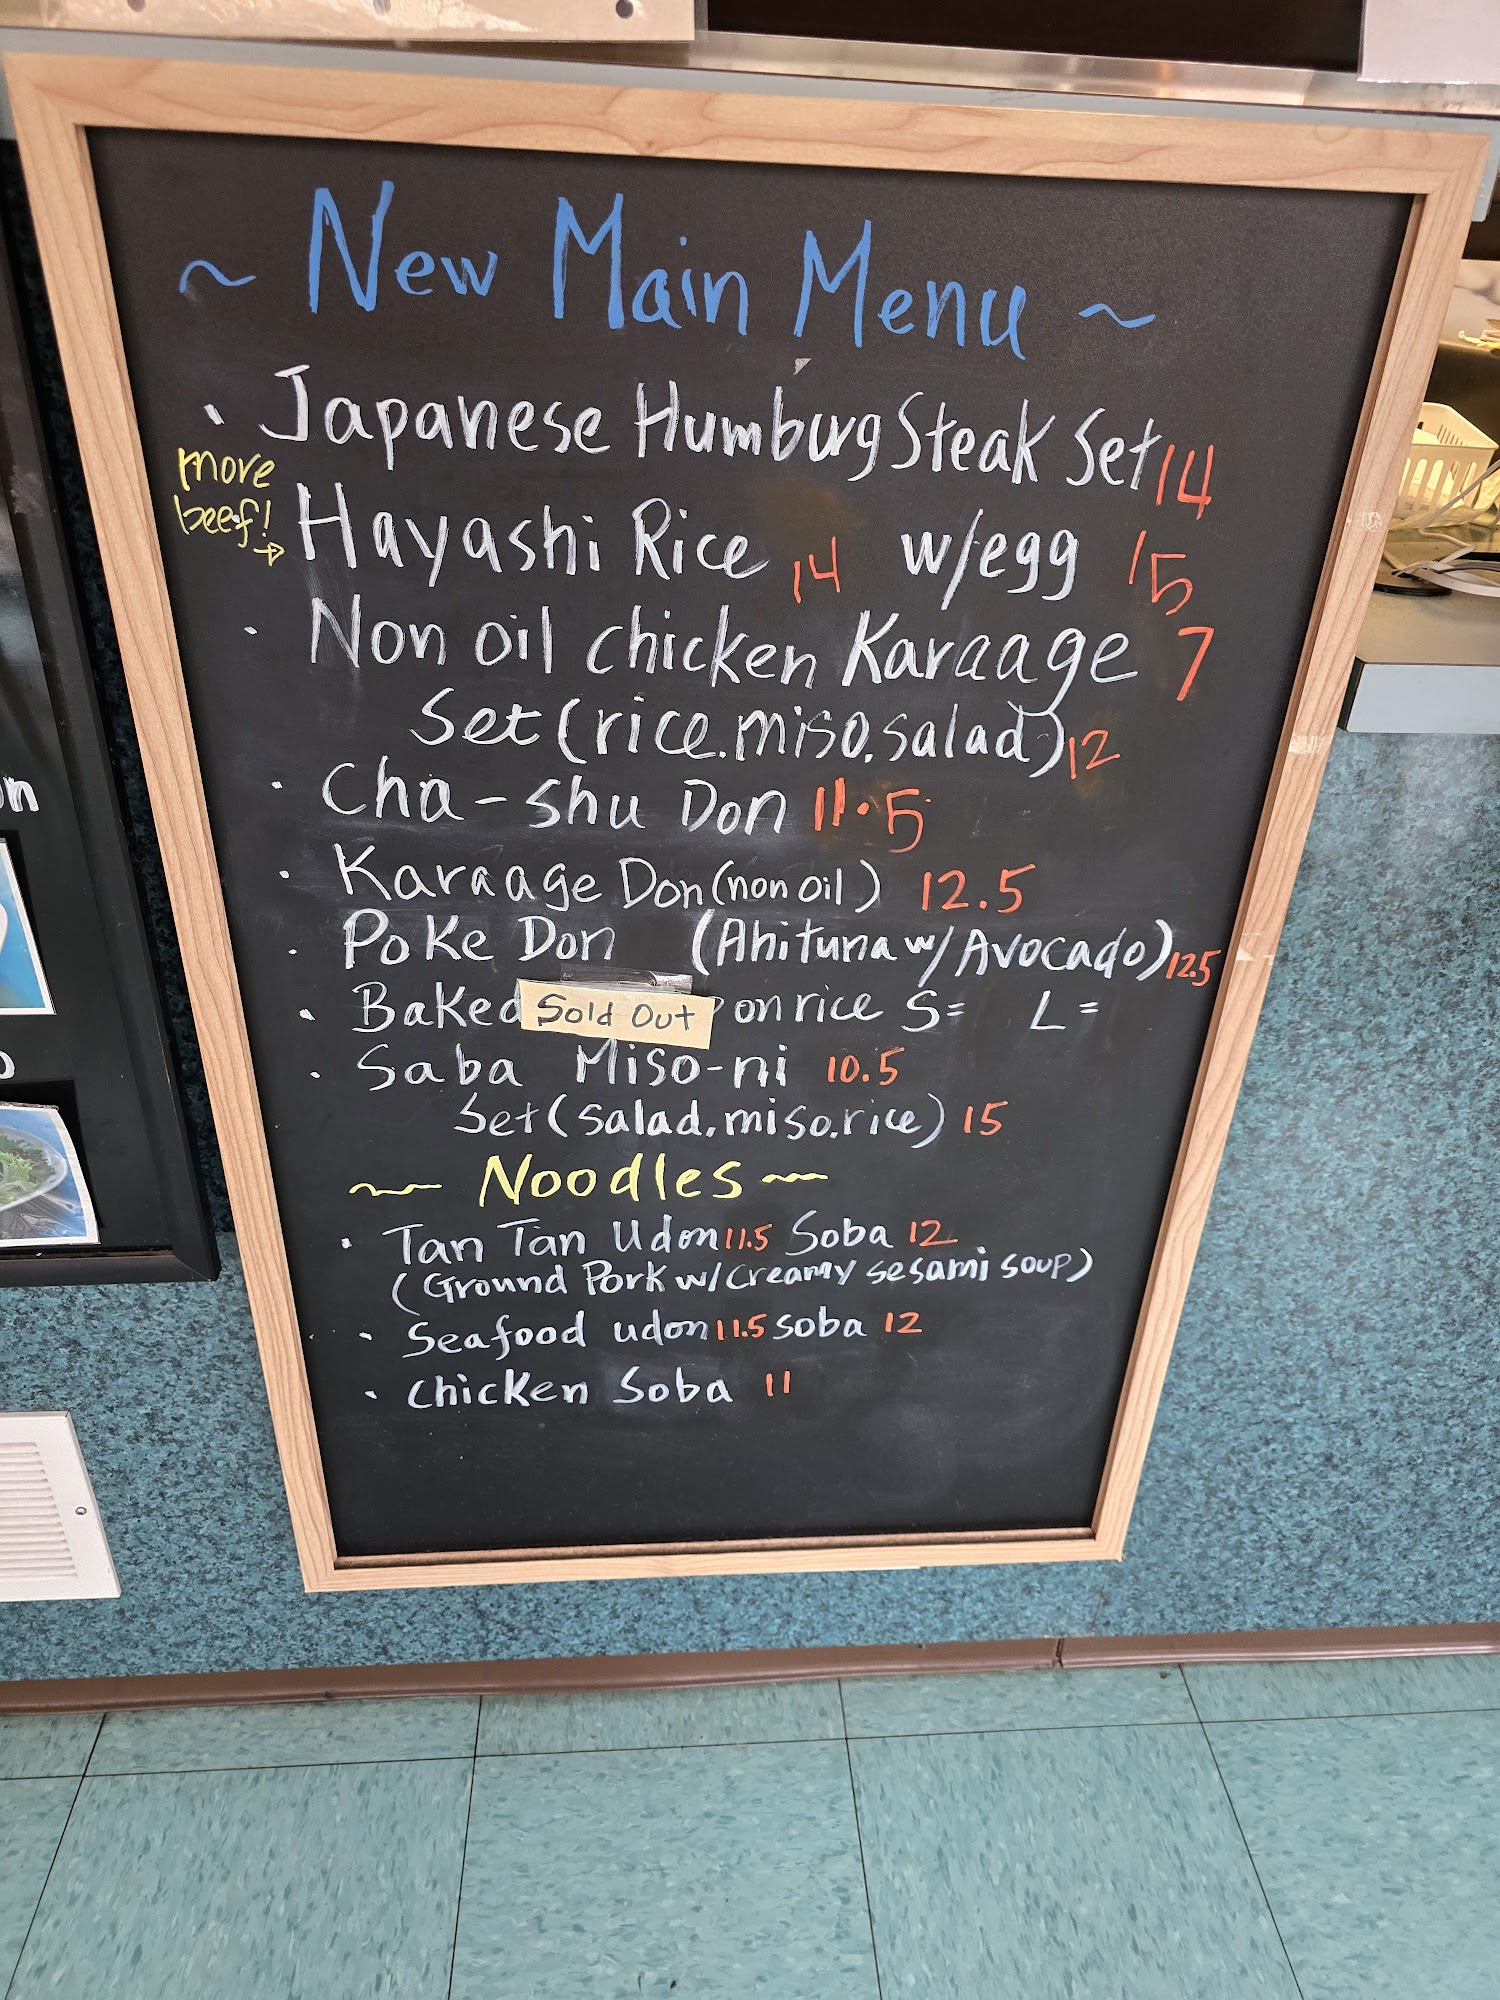 ~ New Main Menu ~
· Japanese Humburg Steak Set 14
more
beef! →
Hayashi Rice 14 w/egg 15
· Non oil chicken Karaage 7
Set (rice. miso. salad) 12
· Cha-shu Don 11.5
· Karaage Don (non oil) 12.5
· Poke Don (Ahi tuna w/ Avocado) 12.5
· Baked Sold Out on rice S= L=
· Saba Miso-ni 10.5
Set (salad. miso. rice) 15
~ Noodles ~
· Tan Tan Udon 11.5 Soba 12
(Ground Pork w/ creamy sesami soup)
· Seafood udon 11.5 soba 12
· chicken Soba 11